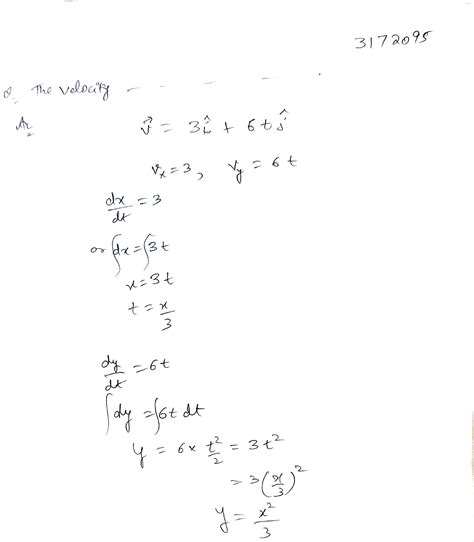 3172095
Q. The velocity – – – – – .
An
v⃗ = 3î + 6tĵ
vₓ = 3, v_y = 6t
dx/dt = 3
or ∫dx = ∫3t
x = 3t
t = x/3
dy/dt = 6t
∫dy = ∫6t dt
y = 6 × t²/2 = 3t²
= 3(x/3)²
y = x²/3